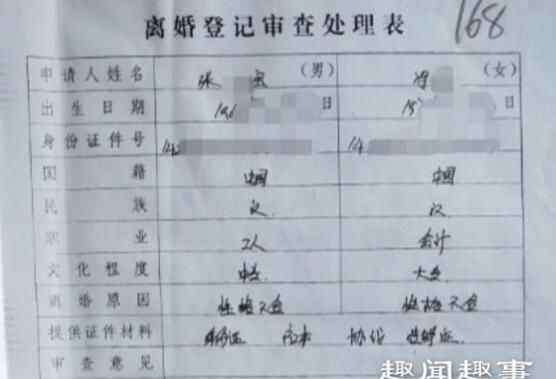 离婚登记审查处理表
168
申请人姓名 张 (男) (女)
出生日期 196 日 19 日
身份证件号 142 14
国籍 中国 中国
民族 汉 汉
职业 工人 会计
文化程度 中专 大专
离婚原因 性格不合 性格不合
提供证件材料 身份证 户口本 协议 结婚证
审查意见
趣闻趣事